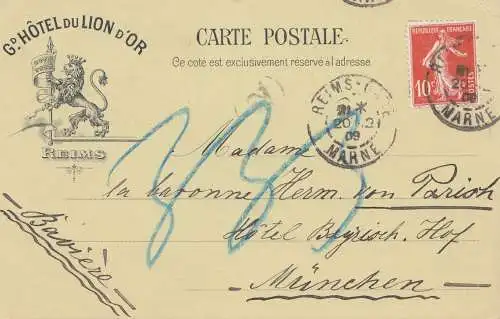 Gᴰ HÔTEL DU LION D'OR
REIMS
CARTE POSTALE.
Ce coté est exclusivement réservé à l'adresse.
RÉPUBLIQUE FRANÇAISE
10ᶜ
POSTES
REIMS
20
09
MARNE
Madame
la baronne Herm. von Parish
Hôtel Bayrisch. Hof
München
Bavière